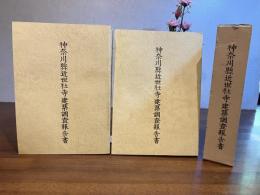 神奈川縣近世社寺建築調査報告書
神奈川縣近世社寺建築調査報告書
神奈川縣近世社寺建築調査報告書